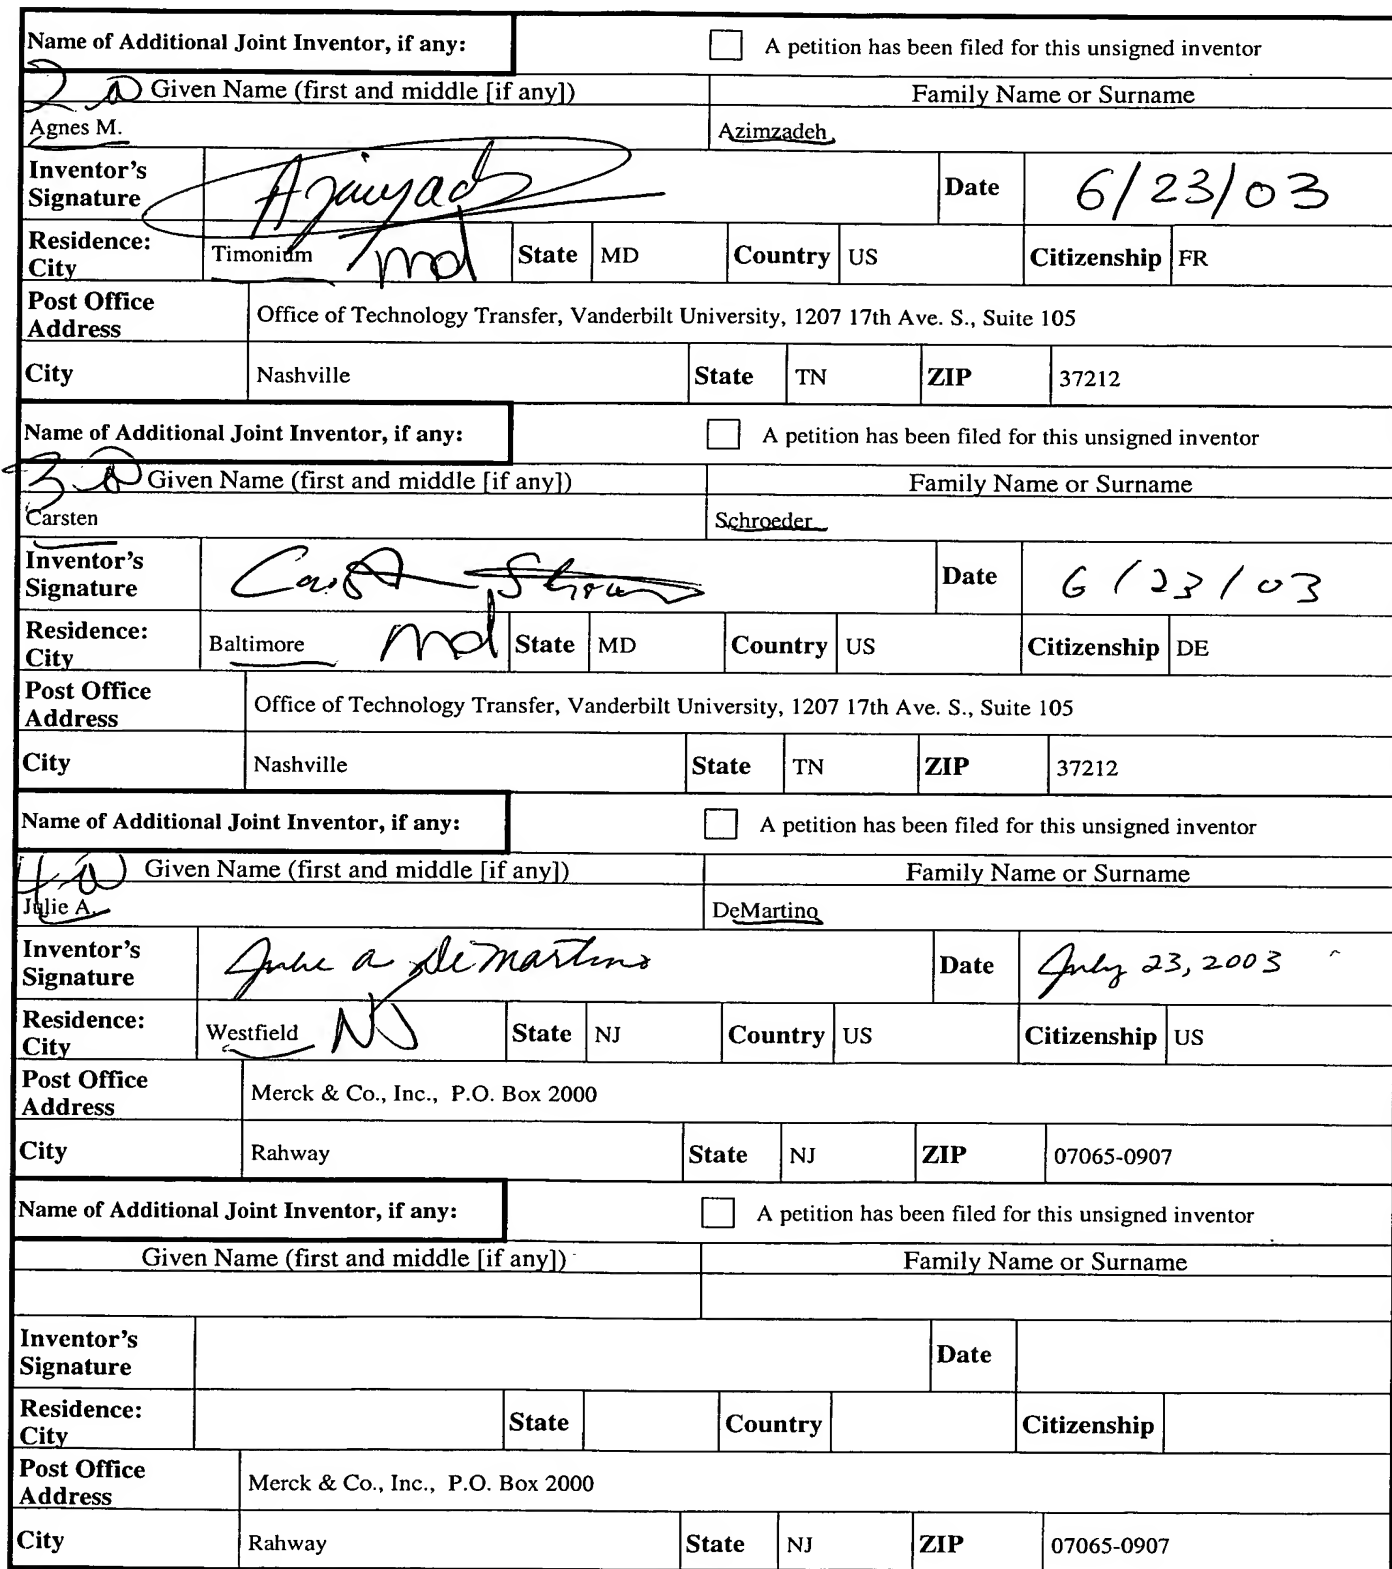 Name of Additional Joint Inventor, if any: A petition has been filed for this unsigned inventor
Given Name (first and middle [if any]) Family Name or Surname
Agnes M. Azimzadeh
Inventor's Signature Date 6/23/03
Residence: City Timonium md State MD Country US Citizenship FR
Post Office Address Office of Technology Transfer, Vanderbilt University, 1207 17th Ave. S., Suite 105
City Nashville State TN ZIP 37212
Name of Additional Joint Inventor, if any: A petition has been filed for this unsigned inventor
Given Name (first and middle [if any]) Family Name or Surname
Carsten Schroeder
Inventor's Signature Date 6/23/03
Residence: City Baltimore md State MD Country US Citizenship DE
Post Office Address Office of Technology Transfer, Vanderbilt University, 1207 17th Ave. S., Suite 105
City Nashville State TN ZIP 37212
Name of Additional Joint Inventor, if any: A petition has been filed for this unsigned inventor
Given Name (first and middle [if any]) Family Name or Surname
Julie A. DeMartino
Inventor's Signature Julie A DeMartino Date July 23, 2003
Residence: City Westfield NJ State NJ Country US Citizenship US
Post Office Address Merck & Co., Inc., P.O. Box 2000
City Rahway State NJ ZIP 07065-0907
Name of Additional Joint Inventor, if any: A petition has been filed for this unsigned inventor
Given Name (first and middle [if any]) Family Name or Surname
Inventor's Signature Date
Residence: City State Country Citizenship
Post Office Address Merck & Co., Inc., P.O. Box 2000
City Rahway State NJ ZIP 07065-0907